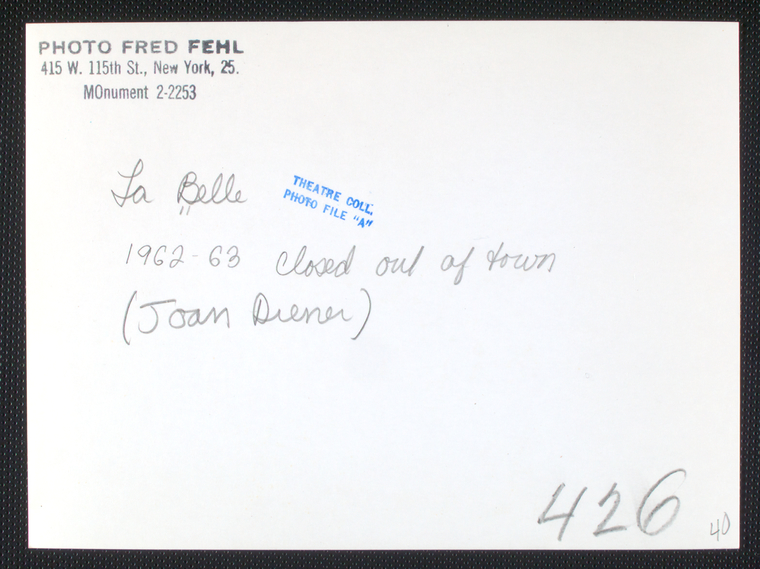 PHOTO FRED FEHL
415 W. 115th St., New York, 25.
MOnument 2-2253
La Belle
THEATRE COLL.
PHOTO FILE "A"
1962-63 closed out of town
(Joan Diener)
426
40